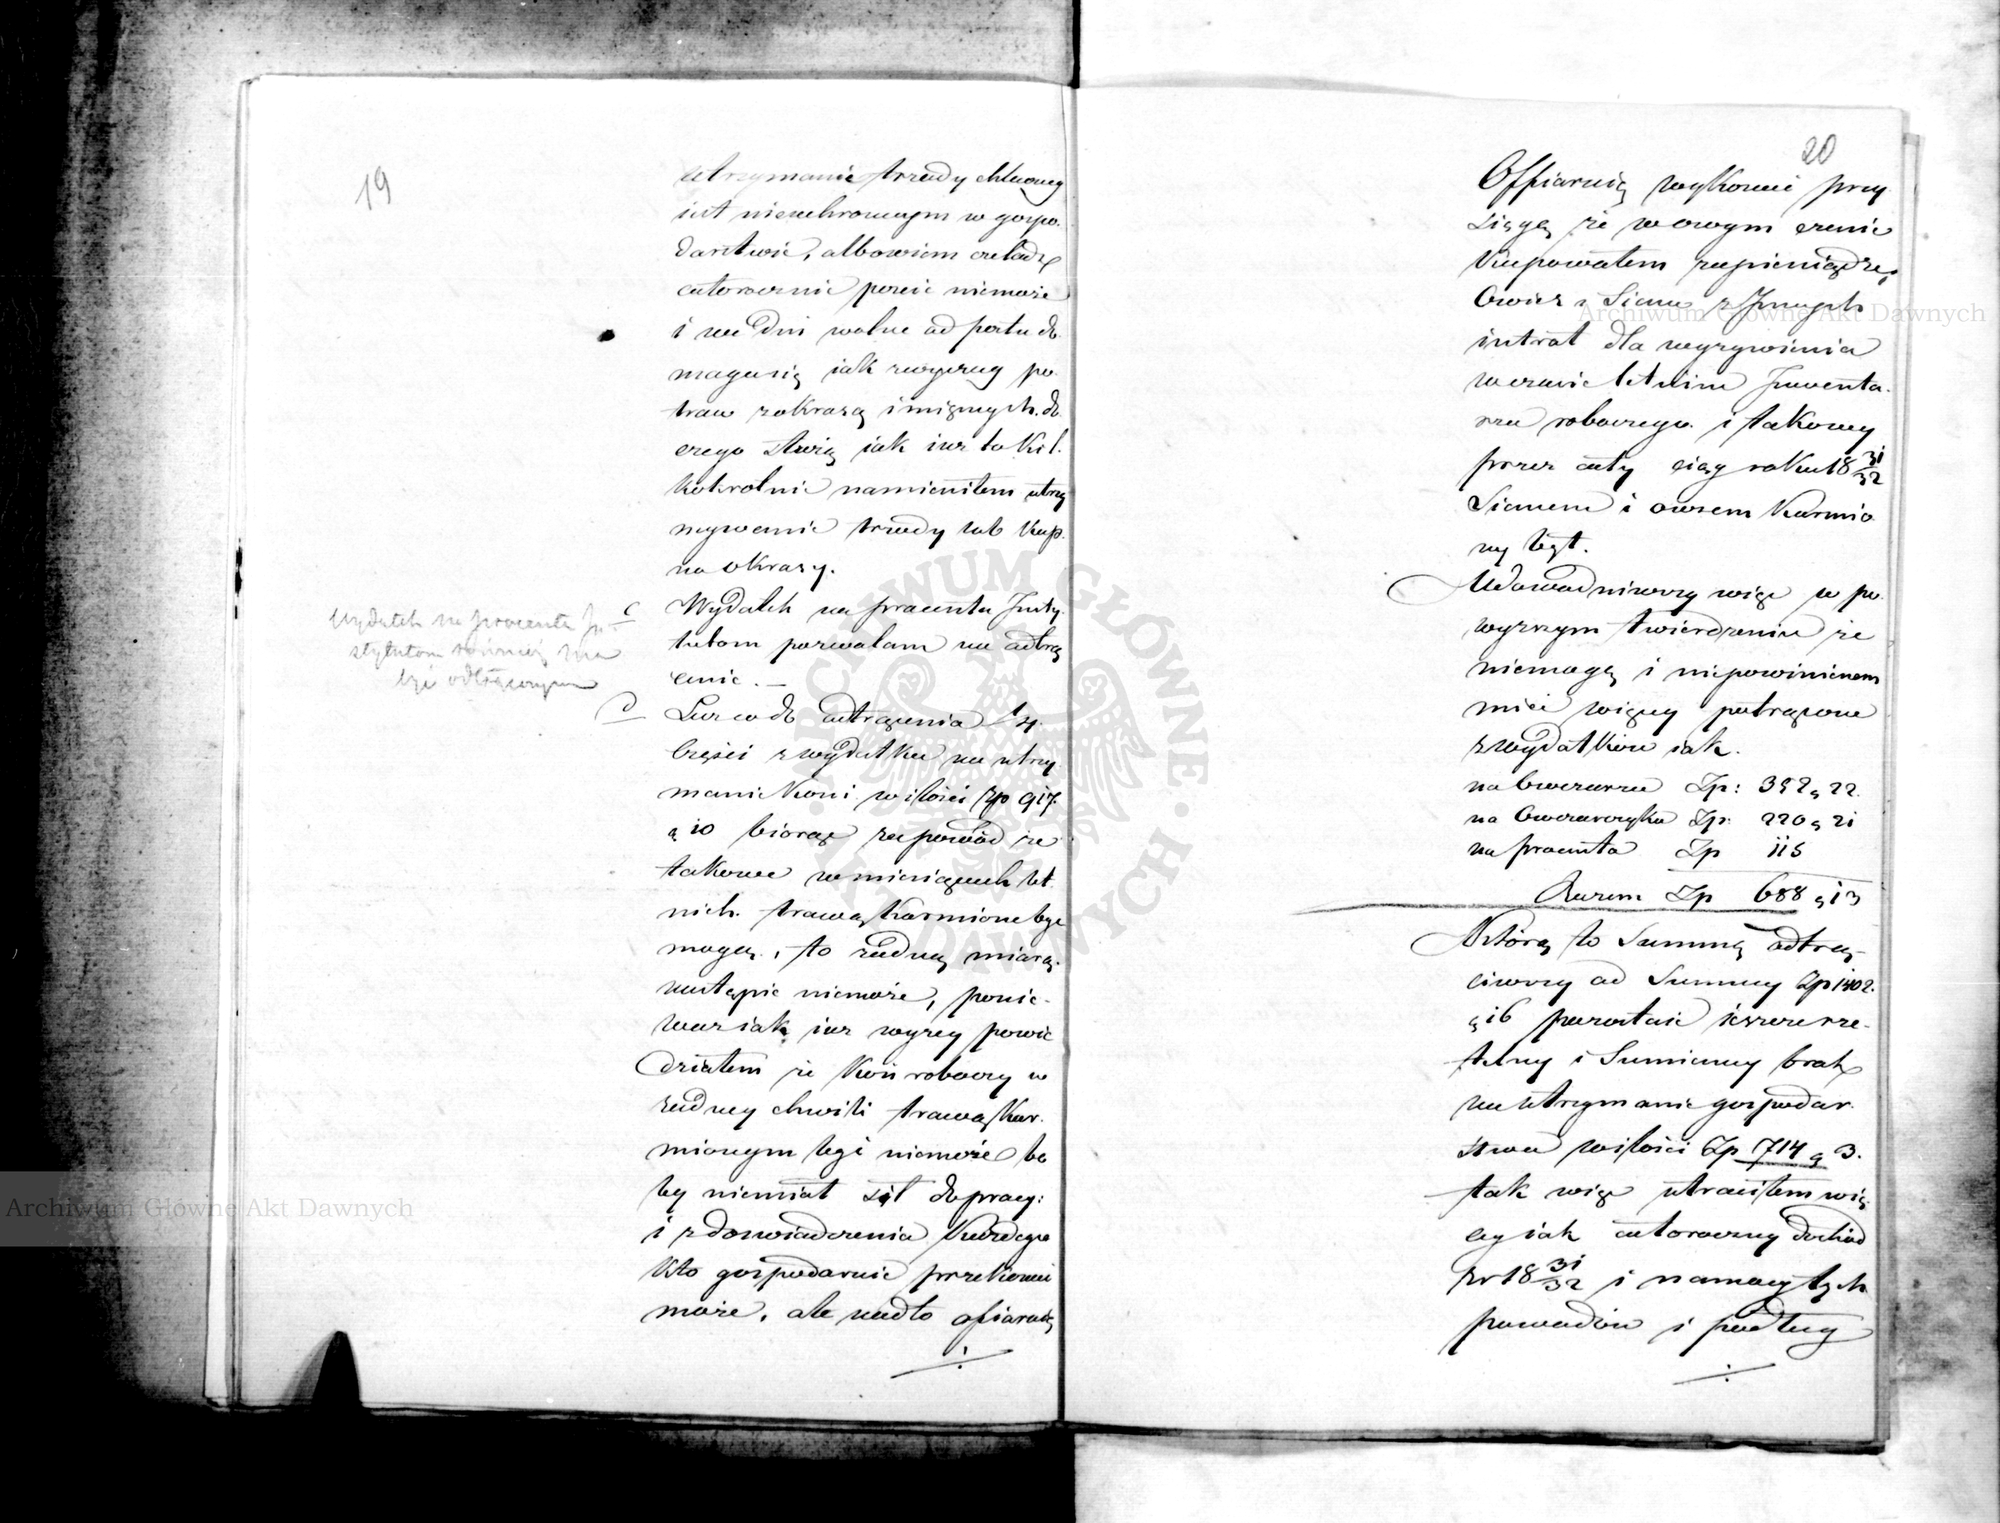 19
utrzymanie trzody chlewney
iest nieuchronnym w gospo.
darstwie, albowiem czeladź
całorocznie pościć niemoże
i na dni wolne od postu do
maga się iak zwyczay po.
traw z okrasą i mięsnych. do
czego służy iak iuż to kil.
kokrotnie namieniłem utrzy
mywanie trzody lub kup.
no okrasy.
Wydatek na procenta Insty
tutom
c Wydatek na procenta Insty.
tutom pozwalam na odtrą
cenie. —
Wydatek na procenta In-
stytutom również ma
być odtrąconym
D Lecz co do odtrącenia 1/4.
Części z wydatku na utrzy
manie Koni w ilości Zp 917.
g 10 biorąc za powód że
takowe w miesiącach let.
nich. trawą karmione być
mogą, to żadną miarą
nastąpić niemoże, ponie-
waż iak iuż wyżey powie
działem że Koń roboczy w
żadney chwili trawą kar.
mionym być niemoże bo
by niemiał sił do pracy:
i z doświadczenia każdego
kto gospodaruie przekonać
może, ale nadto ofiaruię
20
Offiaruię wykonać przy
sięgę że w owym czasie
kupowałem za pieniądze,
Owies i Siano z Innych
intrat dla wyżywienia
w czasie letnim Inwenta.
rza roboczego i takowy
przez cały ciąg roku 18 31/32
Sianem i owsem karmio
ny był.
Udowodniwszy więc w po.
wyższym twierdzeniu że
niemogą i niepowinienem
mieć więcey potrącone
z wydatków iak.
na Owczarza Zp: 352 g 22.
na Owczarczyka Zp: 220 g 21
na procenta Zp 115
Razem Zp 688 g 13
Którą to Summę odtrą-
ciwszy od Summy Zp 1402.
g 16 pozostaie ieszcze rze-
telny i Sumienny brak
na utrzymanie gospodar.
stwa w ilości Zp 714 g 3.
tak więc utraciłem wię
cey iak całoroczny dochód
z r 18 31/32 i na mocy tych
powodów i podług